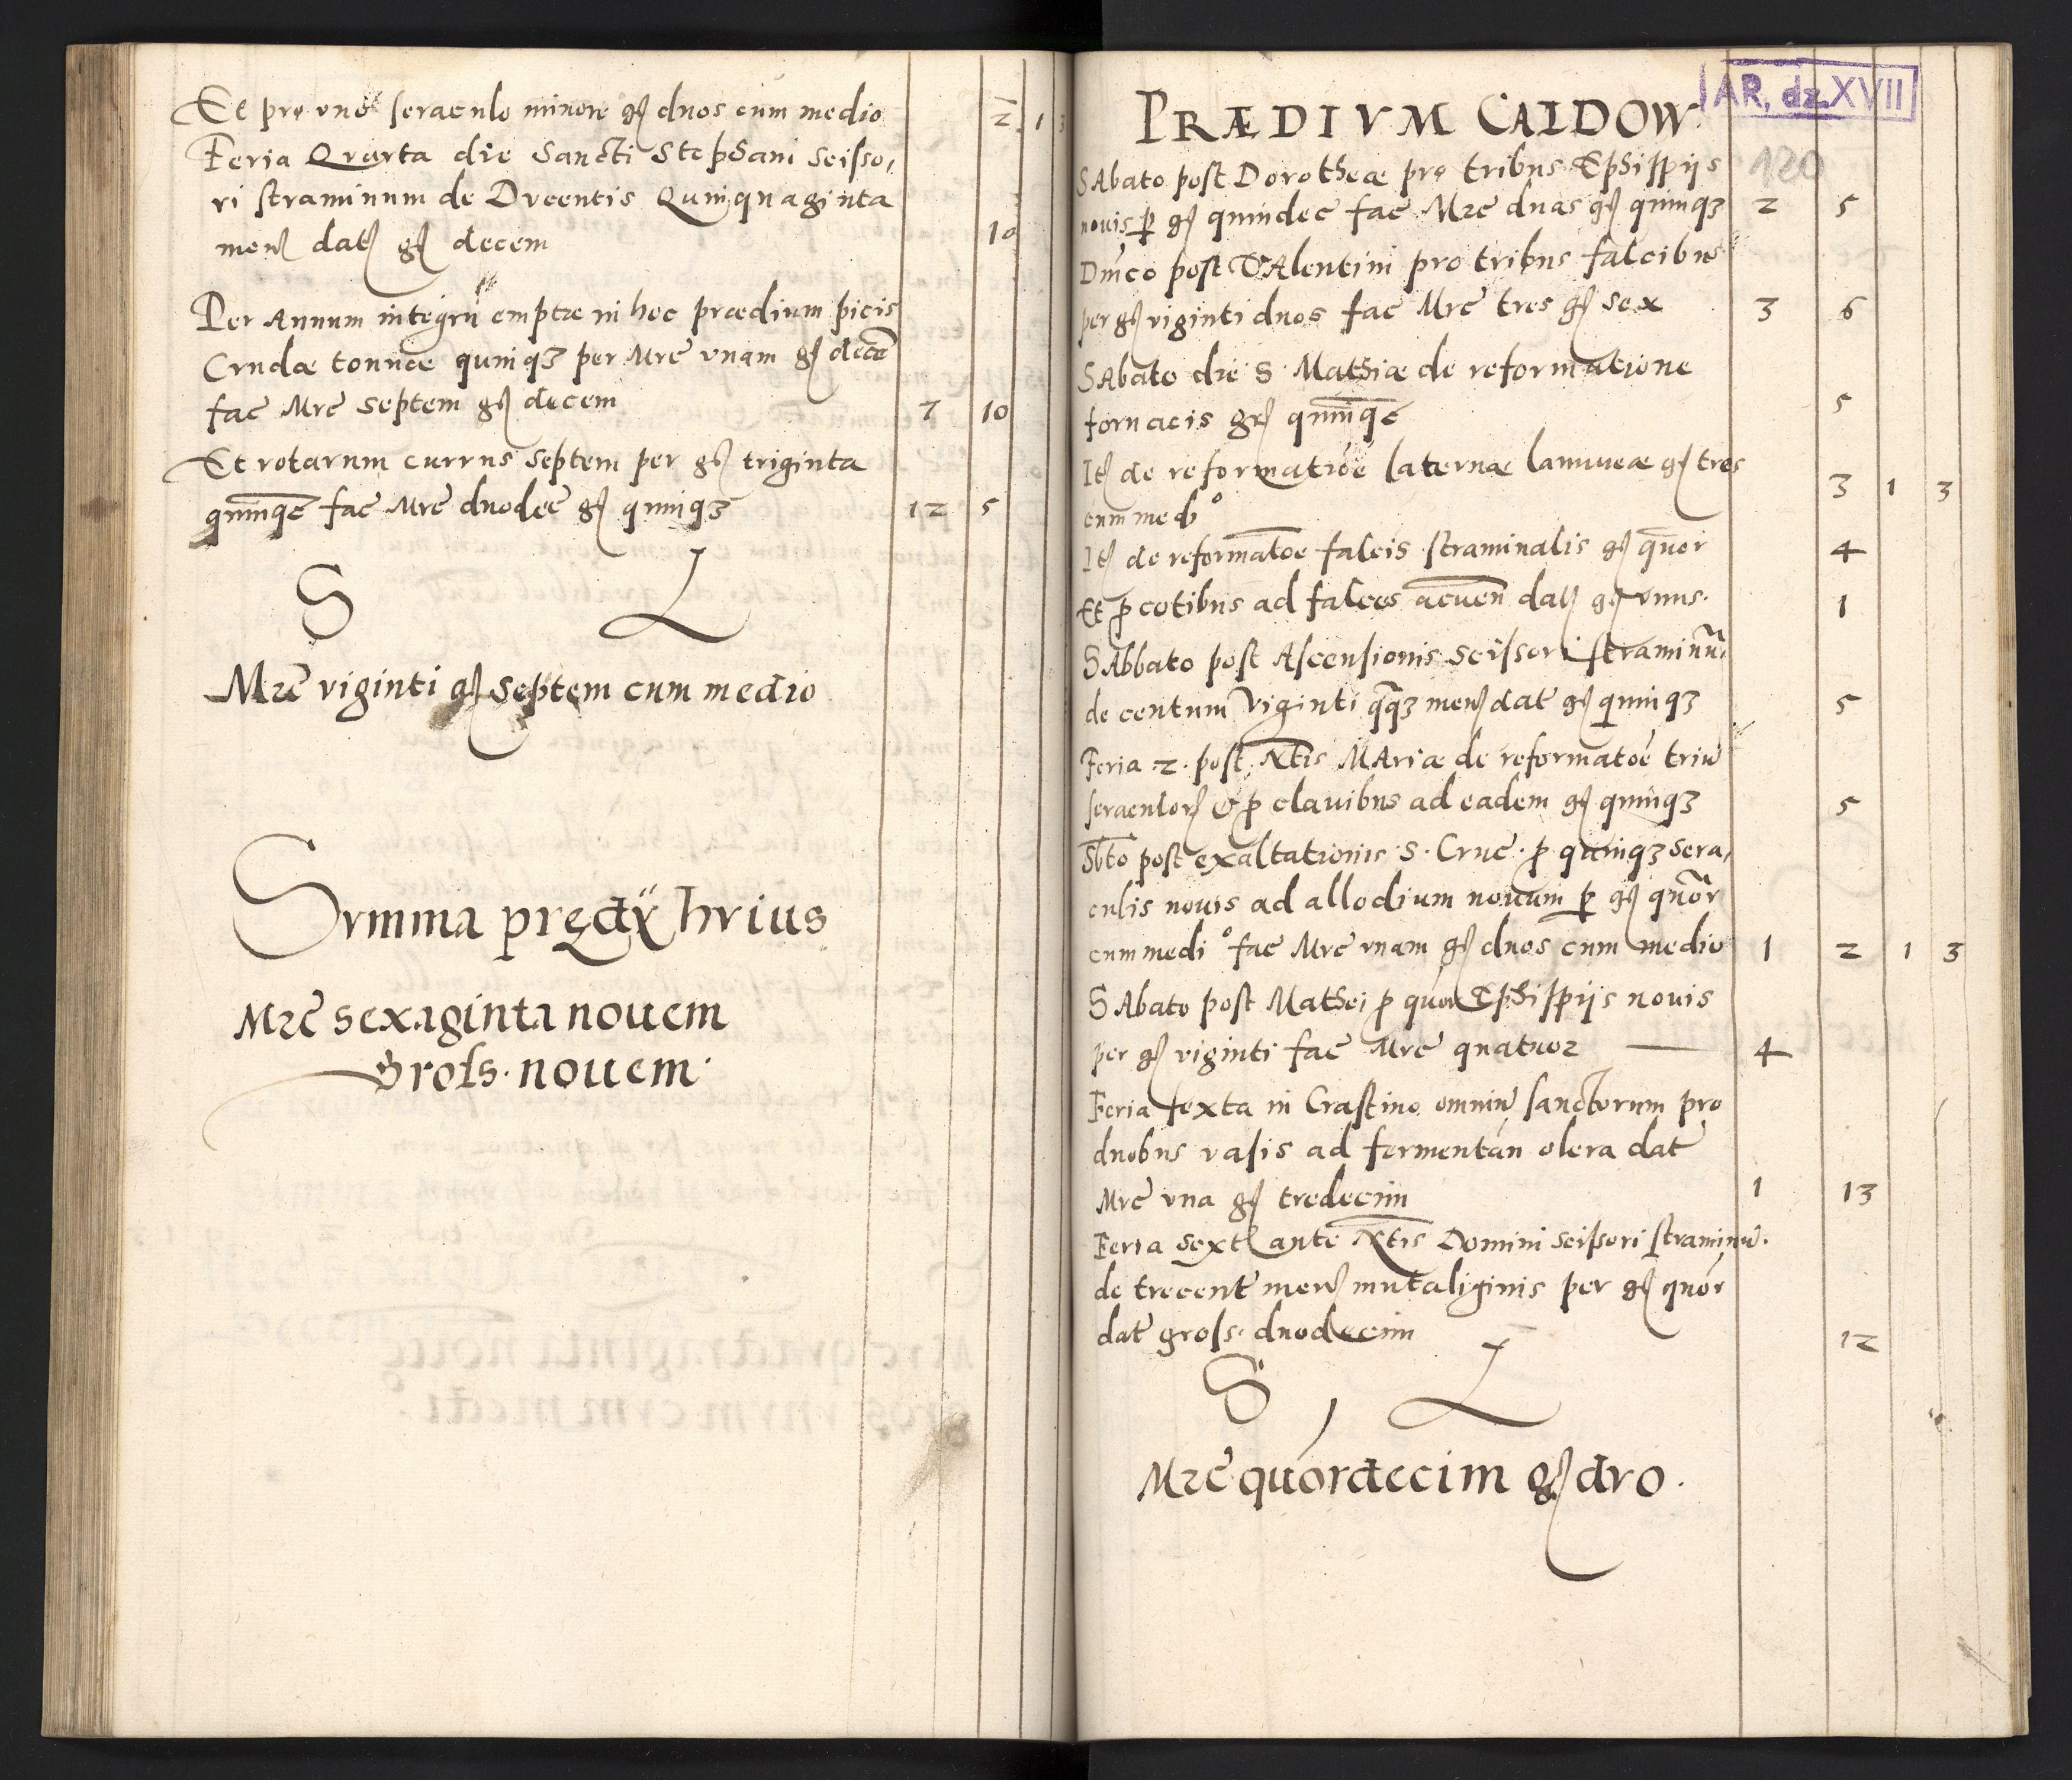 Et pro uno seraculo minore gſ duos cum medio 2 1 3
Feria Qvarta die Sancti Stephani Scisso,
ri straminum de Dvcentis Quinquaginta
menſ datſ gſ decem 10
Per Annum integrū emptæ in hoc prædium picis
Crudæ tonnæ quinqꝫ per Mrc̄ vnam gſ decē
fac̄ Mrc̄ septem gſ decem 7 10
Et rotarum currus septem per gſ triginta
quinq̄e fac̄ Mrc̄ duodec̄ gſ quinqꝫ 12 5
S L
Mrc̄ viginti gſ septem cum medio
Svmma prędÿ hvius
Mrc̄ sexaginta nouem
Groſs. nouem.
AR, dz. XVII
PRÆDIVM CALDOW
120
SAbato post Dorotheæ pro tribus Ephippijs
nouis ꝑ gſ quindec̄ fac̄ Mrc̄ duas gſ quinqꝫ 2 5
Dn̄co post VAlentini pro tribus falcibus
per gſ viginti duos fac̄ Mrc̄ tres gſ sex 3 6
SAbato die S. Mathiæ de reformatione
fornacis grſ quinq̄e 5
Itſ de reformatiōe laternæ lamineæ gſ tres
cum medº 3 1 3
Itſ de reformatōe falcis straminalis gſ quor 4
Et ꝓ cotibus ad falces acuen̄ datſ gſ vnus. 1
SAbbato post Ascensionis scissori straminū.
de centum viginti qnqꝫ menſ dat̄ gſ quinqꝫ 5
Feria 2. post Nt̄is MAriæ de reformatōe triū
seraculorſ & ꝓ clauibus ad eadem gſ quinqꝫ 5
Sb̄to post exaltationis S. Cruc̄. ꝓ quinqꝫ sera,
culis nouis ad allodium nouum ꝑ gſ quōr
cum mediº fac̄ Mrc̄ vnam gſ duos cum medio 1 2 1 3
SAbato post Mathei ꝓ quor Ephippijs nouis
per gſ viginti fac̄ Mrc̄ quatuor 4
Feria sexta in Crastino omniū sanctorum pro
duobus vasis ad fermentan̄ olera dat̄
Mrc̄ vna gſ tredecim 1 13
Feria sextſ ante Nt̄is Domini scissori straminū.
de trecent̄ menſ mutaliginis per gſ quōr
dat̄ groſs. duodecim 12
S L
Mrc̄ quōrdecim gſ dvo.